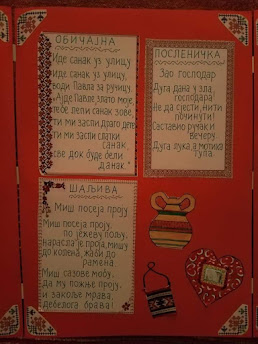 ОБИЧАЈНА
Иде санак уз улицу
Иде санак уз улицу,
води Павла за ручицу,
„Ајде Павле злато моје,
тебе лепи санак зове
ти ми заспи драго дете
ти ми заспи слатки
санак,
све док буде бели
данак."
ПОСЛЕНИЧКА
Зао господар
Дуга дана у зла
господара!
Не да сјести, нити
починути!
Саставио ручак и
вечеру
Дуга лука, а мотика
тупа.
ШАЉИВА
Миш посеја проју
Миш посеја проју,
по јежеву пољу,
нарасла је проја, мишу
до колена, жаби до
рамена.
Миш сазове мобу,
да му пожње проју,
и закоље мрава,
дебелога брава!